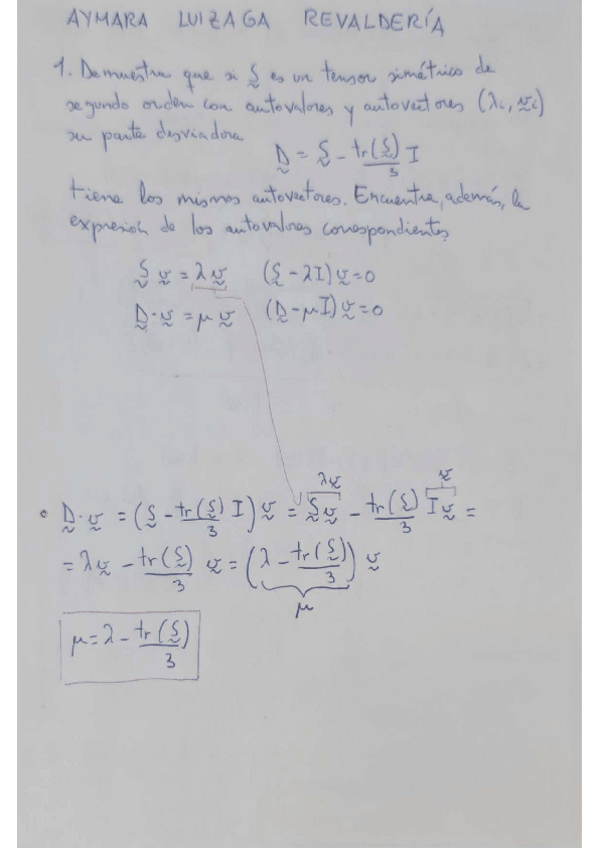 AYMARA LUIZAGA REVALDERÍA
1. Demuestra que si S̰ es un tensor simétrico de
segundo orden con autovalores y autovectores (λᵢ, v̰ᵢ)
su parte desviadora
D̰ = S̰ - tr(S̰)/3 I
tiene los mismos autovectores. Encuentra, además, la
expresión de los autovalores correspondientes
S̰ v̰ = λ v̰ (S̰ - λI) v̰ = 0
D̰ · v̰ = μ v̰ (D̰ - μI) v̰ = 0
λv̰ v̰
• D̰ · v̰ = (S̰ - tr(S̰)/3 I) v̰ = S̰ v̰ - tr(S̰)/3 I v̰ =
= λ v̰ - tr(S̰)/3 v̰ = (λ - tr(S̰)/3) v̰
μ
μ = λ - tr(S̰)/3